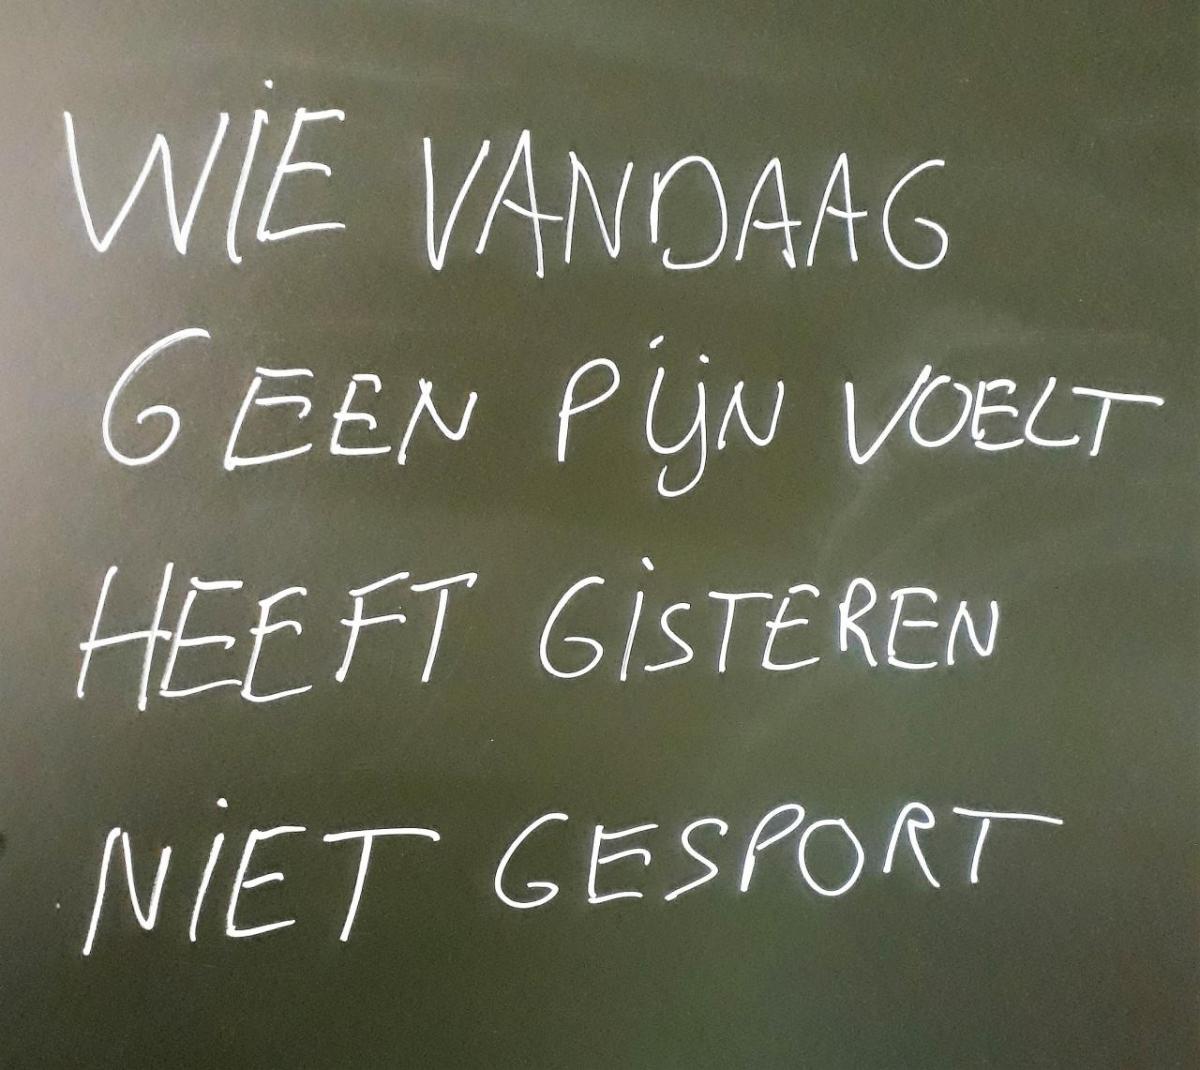 WIE VANDAAG
GEEN PIJN VOELT
HEEFT GISTEREN
NIET GESPORT